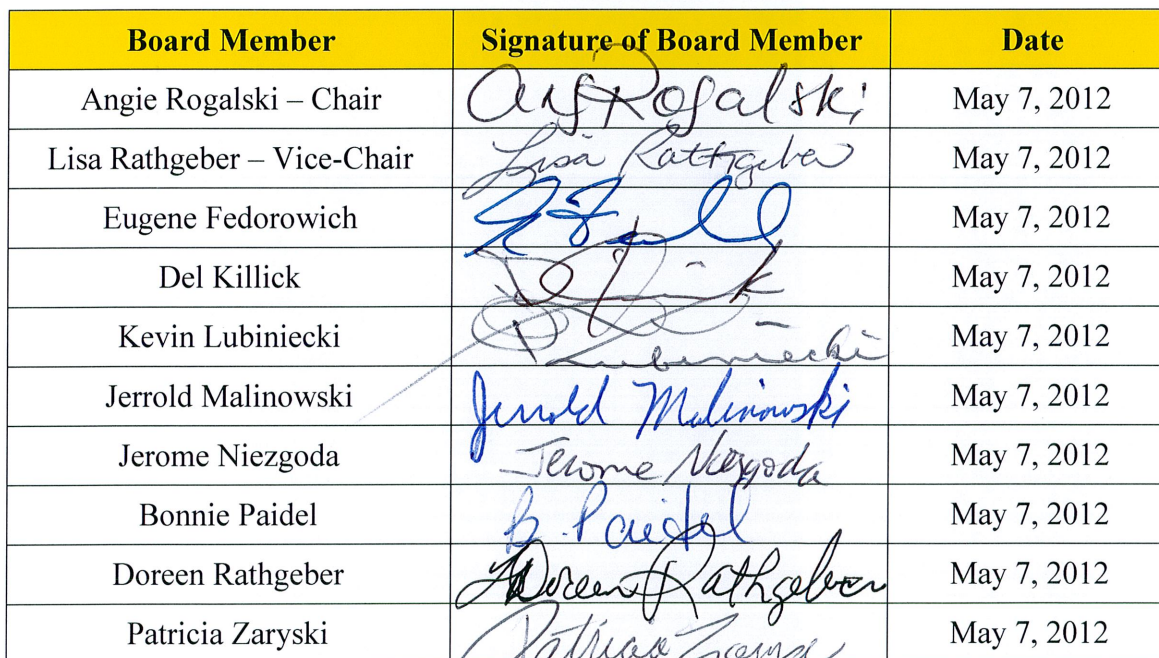 Board Member Signature of Board Member Date
Angie Rogalski – Chair Ang Rogalski May 7, 2012
Lisa Rathgeber – Vice-Chair Lisa Rathgeber May 7, 2012
Eugene Fedorowich May 7, 2012
Del Killick May 7, 2012
Kevin Lubiniecki Lubiniecki May 7, 2012
Jerrold Malinowski Jerrold Malinowski May 7, 2012
Jerome Niezgoda Jerome Niezgoda May 7, 2012
Bonnie Paidel B. Paidel May 7, 2012
Doreen Rathgeber Doreen Rathgeber May 7, 2012
Patricia Zaryski Patricia May 7, 2012